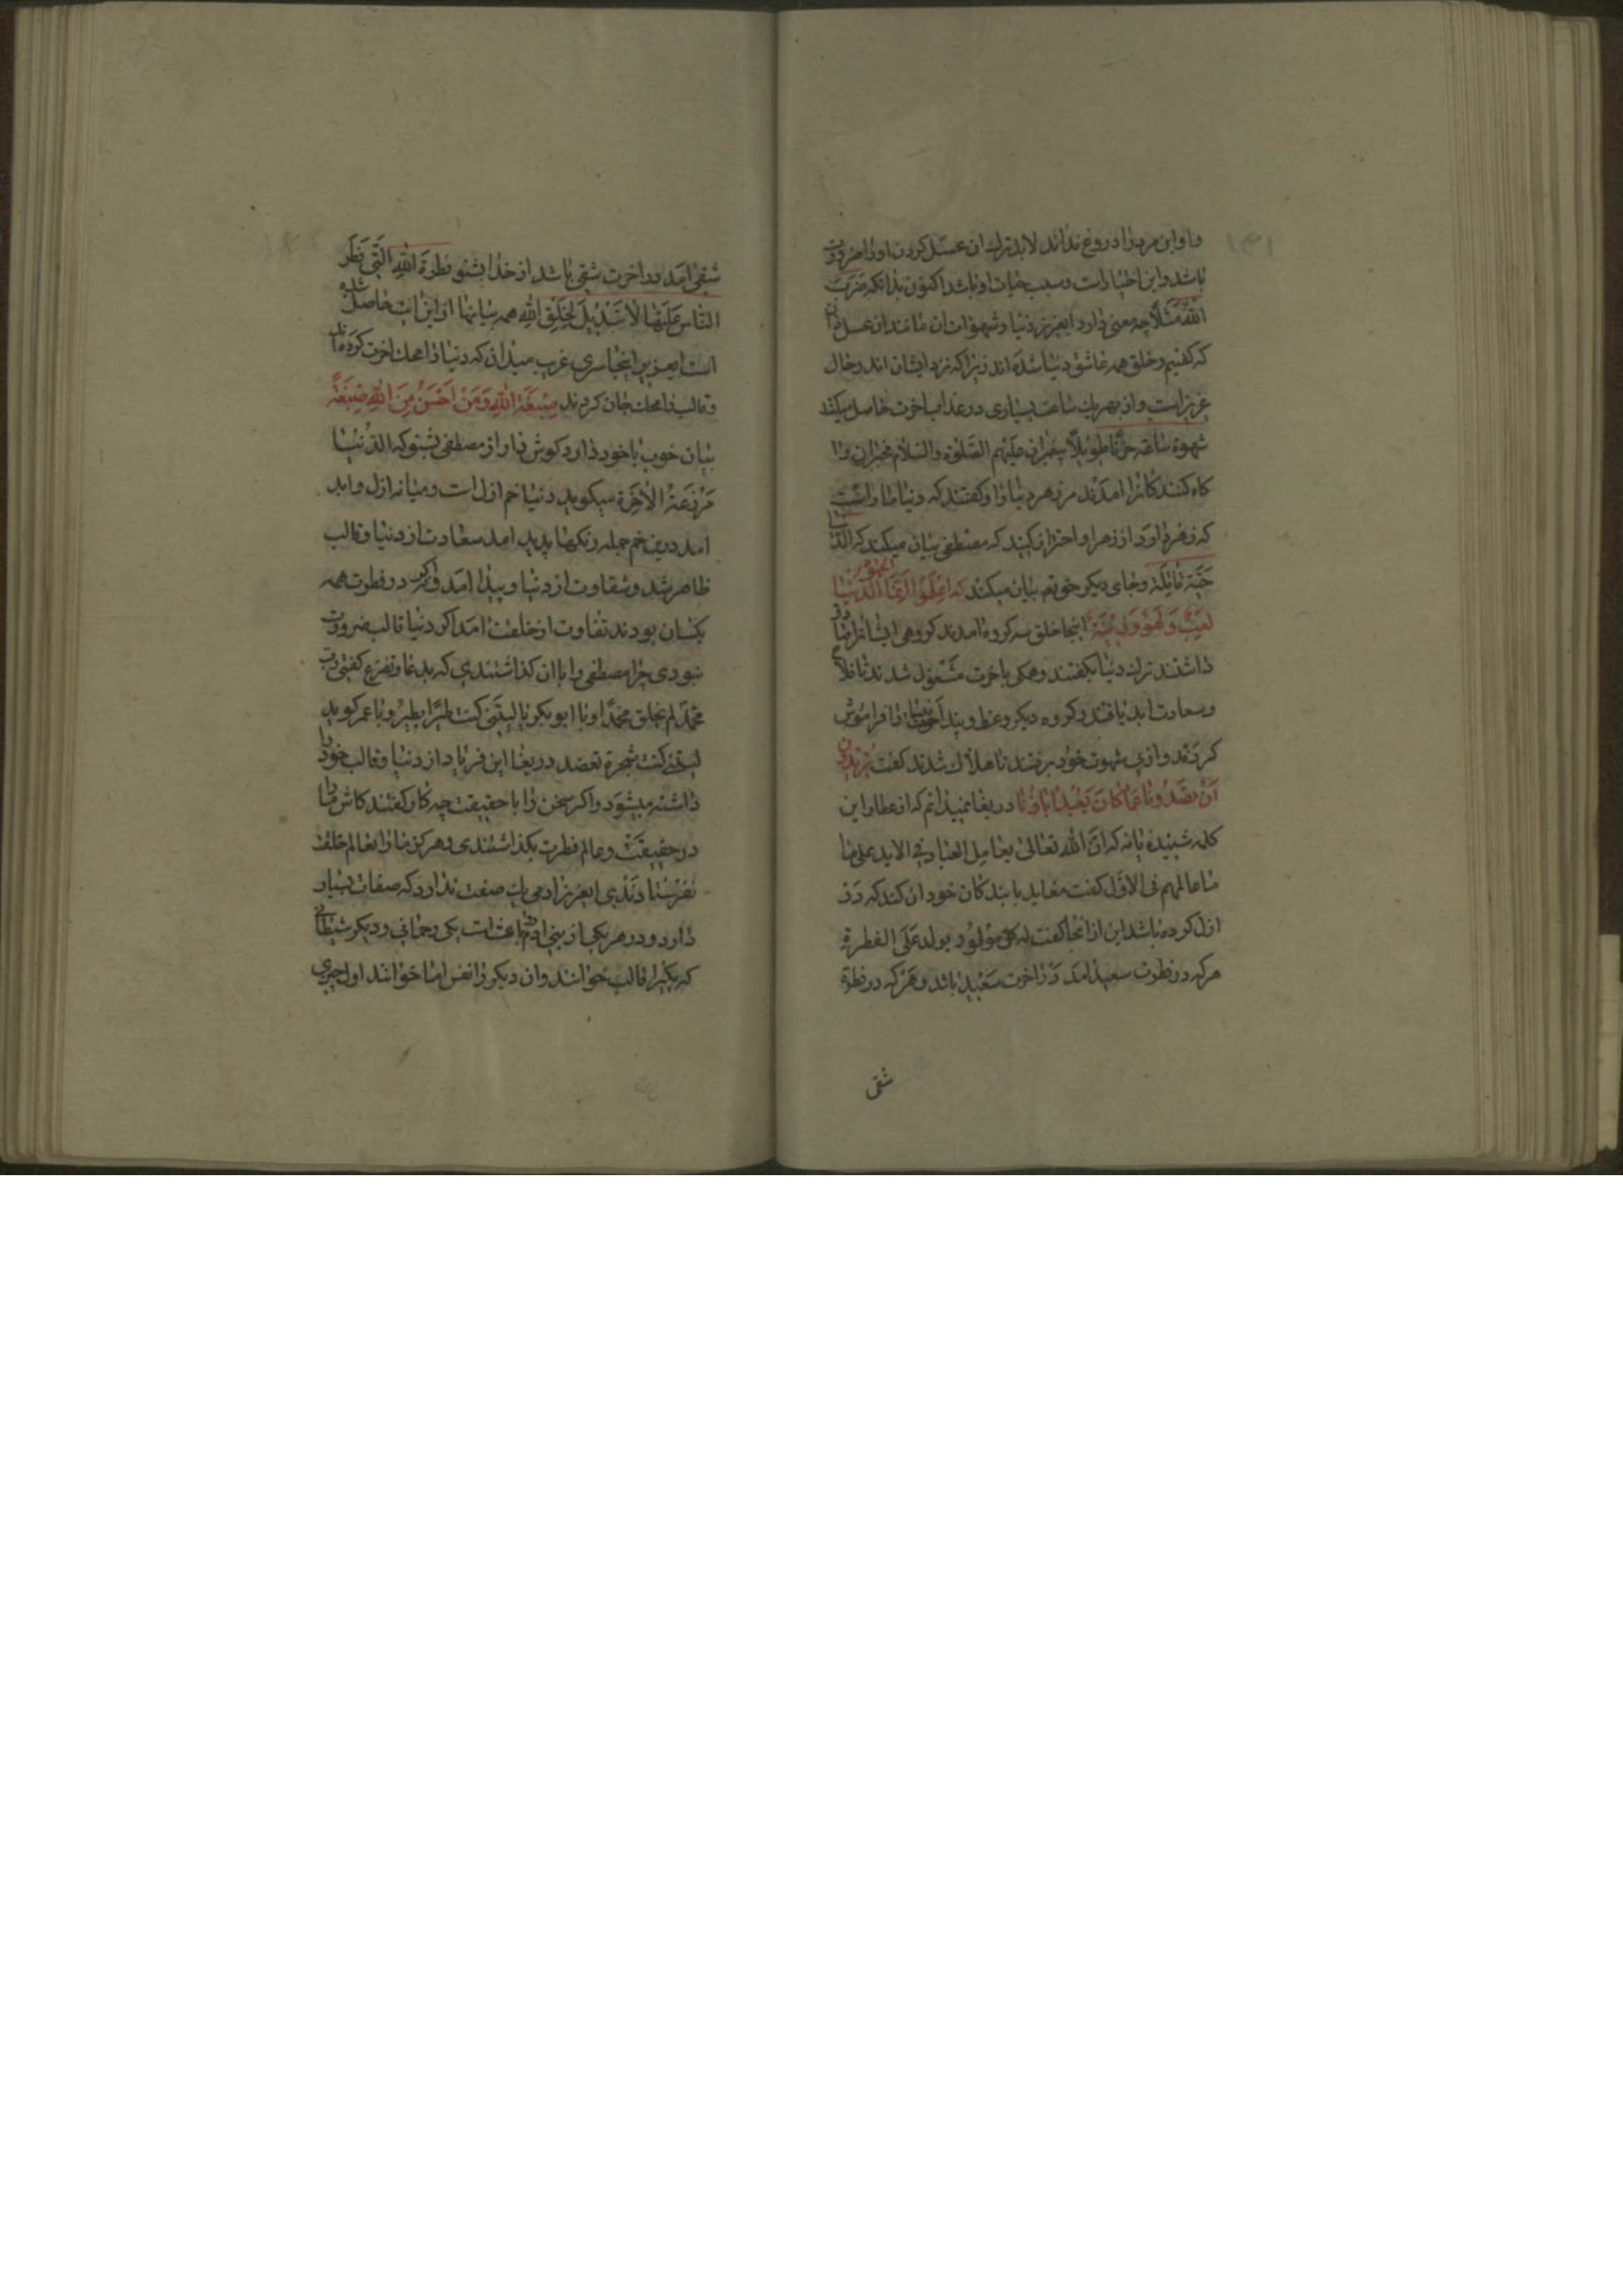 و او این مرد را دروغ نداند لابد ترک ان عسل کردن او را ضرورت
باشد و این اختیارات و سبب حیات او باشد اکنون بدانکه ضرب
الله مثلا چه معنی دارد ایعزیز دنیا و شهوات ان مانند ان عسل دان
که کفتیم و خلق همه عاشق دنیا شده اند زیرا که نزد ایشان اند و حال
عزیزاست و از بهر یک ساعت بسیاری در عذاب اخرت حاصل میکند
شهوة ساعة حزنا طویلا پیغمبران علیهم الصلوة والسلام مخبران و ا
کاه کنندکانرا امدند مر زهر دنیا را و کفتند که دنیا
که زهر دارد از زهر او احتراز کنید که مصطفی بیان میکند که الدنیا
حیة قاتلة و جای دیکر حق تع بیان میکند که اعلموا انما الحیوة الدنیا
لعب و لهو و زینة اینجا خلق سه کروه امدند کروهی
داشتند ترک دنیا بکفتند و همکی باخرت مشغول شدند تا فلاح
و سعادت ابد یافتند و کروه دیکر وعظ و پند انبیا را فراموش
کردند و از پی شهوت خود برفتند تا هلاک شدند کفت تریدون
ان تصدونا عما کان یعبد اباؤنا دریغا نمیدانم که از عطار این
کلمه شنیدهٔ یا نه که ان الله تعالی یعامل العباد فی الابد علی ما
ما عاملهم فی الاول کفت معامله با بندکان خود ان کند که در
ازل کرده باشد این از انجا کفت که کل مولود یولد علی الفطرة
هرکه در فطرت سعید امد در اخرت سعید باشد و هرکه در فطرة
شقی
شقی امد در اخرت شقی باشد از خدا بشنو فطرة الله التی فطر
الناس علیها لا تبدیل لخلق الله همه بیانها از این ایت حاصل شده
است ایعزیز اینجا سری غریب میدان که دنیا را محک اخرت کرده اند
و قالب را محک جان کردند صبغة الله و من احسن من الله صبغة
بیان خوب با خود دارد کوش دار و از مصطفی بشنو که الدنیا
مزرعة الاخرة میکوید دنیا خم ازل است و میانه ازل و ابد
امد درین خم جمله رنکها پدید امد سعادت از دنیا و قالب
ظاهر شد و شقاوت از دنیا و پیدا امد و اکر در فطرت همه
یکسان بودند تفاوت از خلقت امد اکر دنیا قالب ضرورت
نبودی چرا مصطفی را با ان کذاشتندی که بدعا و تضرع کفتی رب
محمد لم یخلق محمدا و با ابو بکر یا لیتنی کنت طیرا یطیر و با عمر کوید
لیتنی کنت شجرة تعضد دریغا این فریاد از دنیا و قالب خود را
داشته میشود و اکر سخن را با حقیقت چه کار کفتند کاش ما را
در حقیقت و عالم فطرت بکذاشتندی و هرکز ما را بعالم خلقت
نفرستادندی ایعزیز ادمی یک صفت ندارد که صفات بسیار
دارد و در هر یکی از بنی ادم دو باعث است یکی رحمانی و دیکر شیطانی
که یکیرا قالب خوانند و ان دیکر را نفس اما خوانند اول چیزی